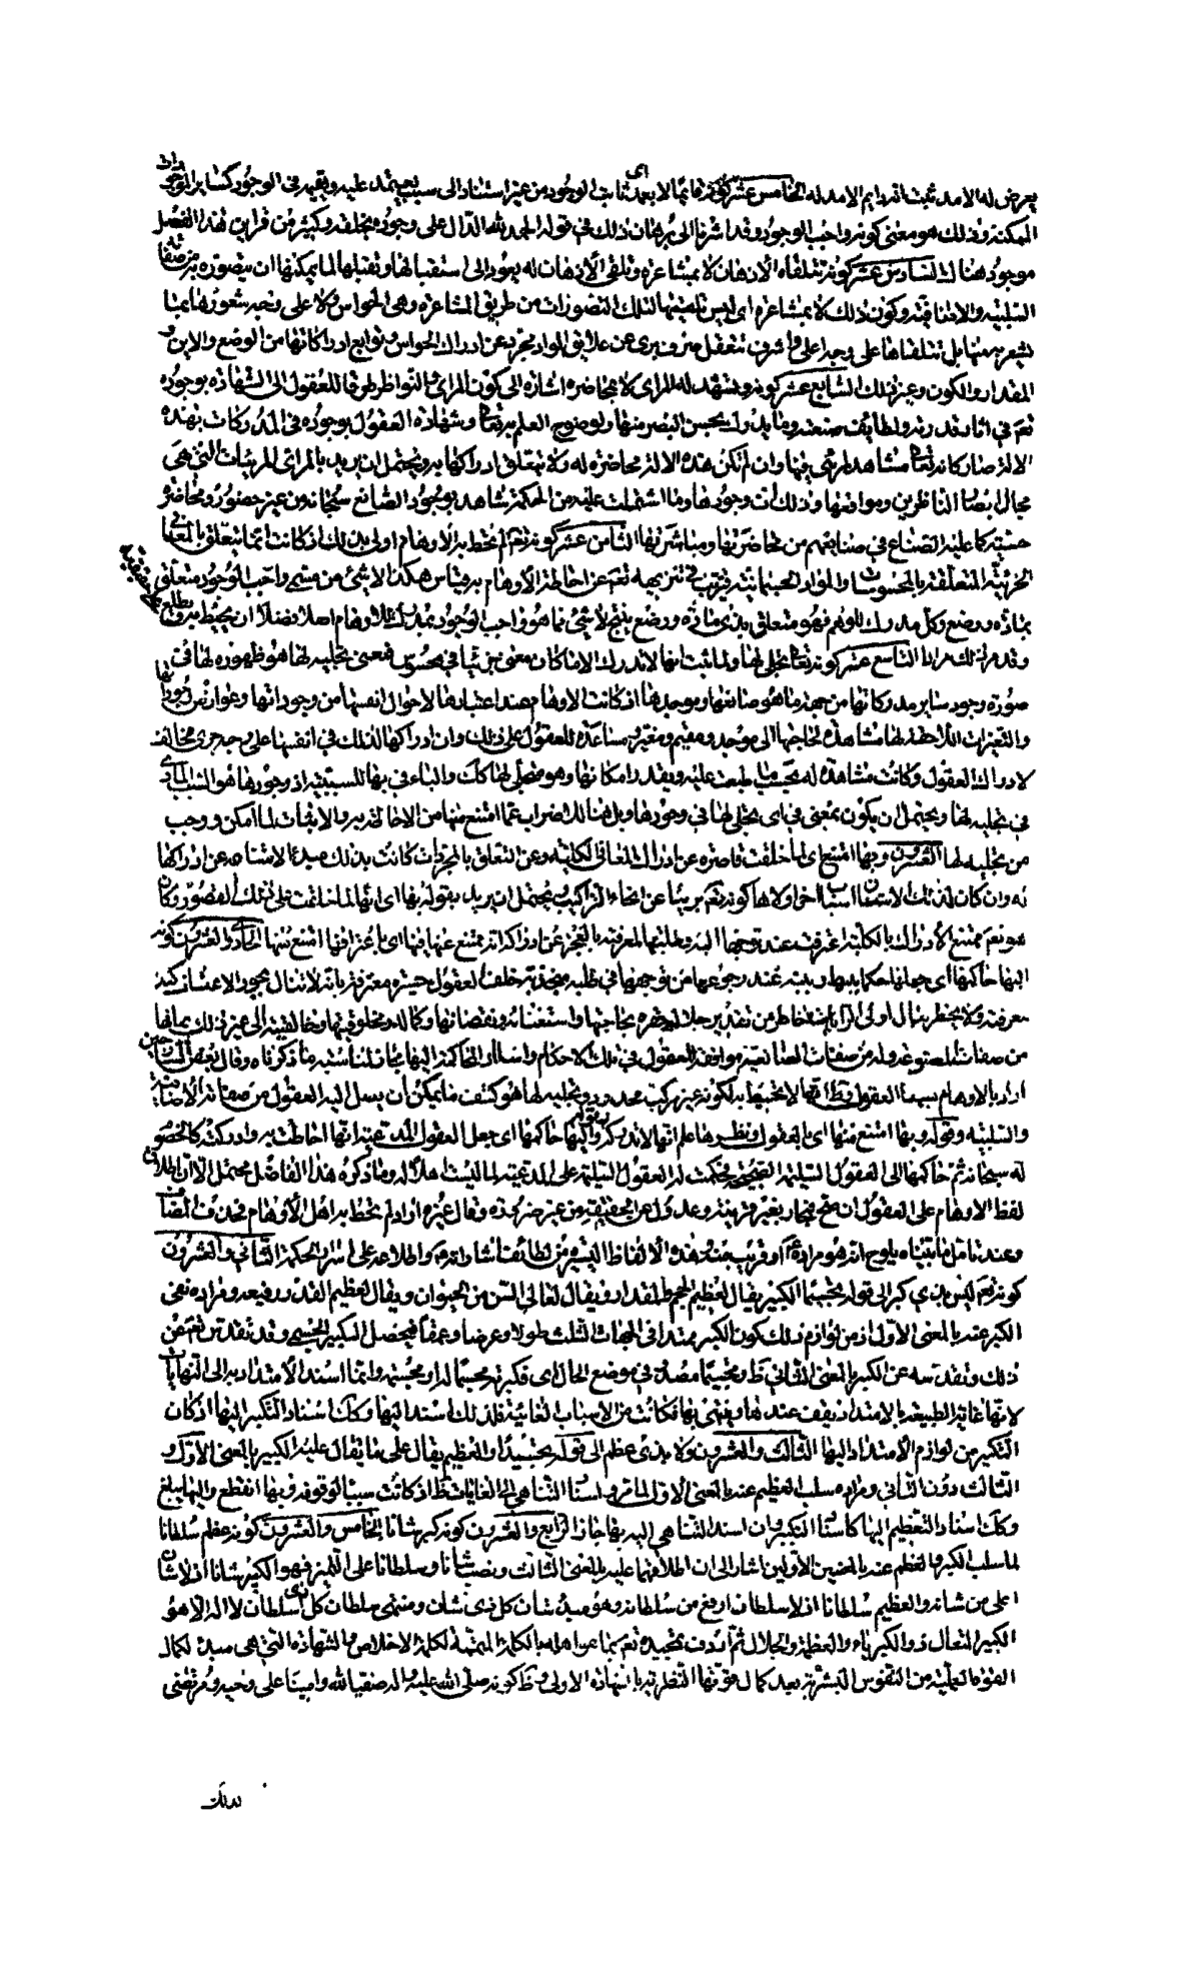 يعرض له الامد ثبت انه دايم لا امد له الخامس عشر كونه قائما لا بعمد اى ثابت الوجود من غير استناد الى سبب يعتمد عليه ويقيمه فى الوجود كسائر الموجودات
الممكنة وذلك هو معنى كونه واجب الوجود وقد اشرنا الى برهان ذلك فى قوله الحمد لله الدال على وجوده بخلقه وكثير من قراين هذا الفصل
موجود هناك السادس عشر كونه تتلقاه الاذهان لا بمشاعرة وتلقى الاذهان له يعود الى استقبالها وتقبلها لما يمكنها ان يتصوره به من صفاته
السلبية والاضافية وكون ذلك لا بمشاعرة اى ليس تلقيها لتلك التصورات من طريق المشاعرة وهى الحواس ولا على وجه شعورها بما
تشعر به منها بل تتلقاها على وجه اعلى واشرف بتعقل صرف برى عن علايق المواد مجرد عن ادراك الحواس وتوابع ادراكاتها من الوضع والاين و
المقدار والكون وغير ذلك السابع عشر كونه وتشهد له المرائى لا بمحاضرة اشارة الى كون المرائى والنواظر طرقا للعقول الى الشهادة بوجوده
تعم فى اثار قدرته ولطايف صنعته وما يدرك بحس البصر منها ولوضوح العلم به تعالى وشهادة العقول بوجوده فى المدركات بهذه
الالة صار كانه تعالى مشاهد مرئى فيها وان لم تكن هذه الالة محاضرة له ولا يتعلق ادراكها به ويحتمل ان يريد بالمرائى المرئيات التى هى
مجال ابصار الناظرين ومواقعها وذلك ان وجودها وما اشتملت عليه من الحكمة شاهد بوجود الصانع سبحانه من غير حضور ومحاضرة
حسية كما عليه الصناع فى صنايعهم من محاضرتها ومباشرتها الثامن عشر كونه تعم لم تحط به الاوهام اولى بذلك اذ كانت انما يتعلق بالمعانى
الجزئية المتعلقة بالمحسوسات والمواد الجسمانية فترتب فى تنزيهه تعم عن احاطة الاوهام به قياس هكذا لا شئ من مسمى واجب الوجود متعلق
بمادة ووضع وكل مدرك للوهم فهو متعلق بذى مادة ووضع ينتج لا شئ مما هو واجب الوجود بمدرك للاوهام اصلا فضلا ان يحيط به ويطلع على حقيقته
وقد مر ذلك مرارا التاسع عشر كونه تعالى تجلى لها ولما ثبت انها لا تدرك الا ما كان معنى جزئيا فى محسوس فمعنى تجليه لها هو ظهوره لها فى
صورة وجود ساير مدركاتها من جهة ما هو صانعها وموجدها اذ كانت الاوهام عند اعتبارها لاحوال انفسها من وجوداتها وعوارض وجوداتها
والتغيرات اللاحقة لها مشاهدة لحاجتها الى موجد ومقيم ومغير ومساعدة للعقول على ذلك وان ادراكها لذلك فى انفسها على وجه جزئى مخالف
لادراك العقول وكانت مشاهدة له بحسب ما طبعت عليه وبقدر امكانها وهو متجلى لها كذلك والباء فى بها للسببية اذ وجودها هو السبب المادى
فى تجليه لها ويحتمل ان يكون بمعنى فى اى تجلى لها فى وجودها وبل هنا للاضراب عما امتنع منها من الاحاطة به والاثبات لما امكن ووجب
من تجليه لها العشرون وبها امتنع اى لما خلقت قاصرة عن ادراك المعانى الكلية وعن التعلق بالمجردات كانت بذلك مبدءا لامتناعه عن ادراكها
له وان كان لذلك الامتناع اسباب اخر اولاها كونه تعم بريئا عن انحاء التراكيب ويحتمل ان يريد بقوله بها اى انها لما خلقت على ذلك القصور وكان
هو تعم ممتنع الادراك بالكلية اعترفت عند توجهها اليه وطلبها لمعرفته بالعجز عن ادراكه انه ممتنع عنها فبها اى باعترافها امتنع منها الحادى والعشرون كونه
اليها حاكمها اى جعلها حكما بينها وبينه عند رجوعها من توجهها فى طلبه منجذبة خلف العقول حسيرة معترفة بانه لا تنال بجور الاعتساف كنه
معرفته ولا يخطر ببال اولى الروايات خاطر من تقدير جلاله مقرة بحاجتها واستغنائه ونقصانها وكماله ومخلوقيتها وخالقيته الى غير ذلك مما لها
من صفات المصنوعية وله من صفات الصانعية موافقة للعقول فى تلك الاحكام واسناد المحاكمة اليها مجاز لمناسبته ما ذكرناه وقال بعض الشارحين
اراد بالاوهام هيهنا العقول وظاهر انها لا تحيط به لكونه غير مركب محدود وتجليه لها هو كشف ما يمكن ان يصل اليه العقول من صفاته الاضافية
والسلبية وقوله وبها امتنع منها اى بالعقول ونظرها علم انها لا تدركه وقوله واليها حاكمها اى جعل العقول المدعية انها احاطت به وادركته كالخصوم
له سبحانه ثم حاكمها الى العقول السليمة الصحيحة فحكمت له العقول السليمة على المدعية لما ليست اهلا له وما ذكره هذا الفاضل محتمل الا ان اطلاق
لفظ الاوهام على العقول ان صح فمجاز بغير قرينة وعدول عن الحقيقة من غير ضرورة وقال غيره اراد لم تحط به اهل الاوهام فحذف المضاف
وعند تامل ما بيناه يلوح انه هو مراده او قريب منه وهذه الالفاظ اليسيرة من لطائف اشاراته واطلاعه على اسرار الحكمة الثانى والعشرون
كونه تعم ليس بذى كبر الى قوله تجسيما الكبير يقال لعظيم الحجم والمقدار ويقال لعالى السن من الحيوان ويقال لعظيم القدر ورفيعه ومراده نفى
الكبر عنه بالمعنى الاول اذ من لوازم ذلك كون الكبر ممتدا فى الجهات الثلث طولا وعرضا وعمقا فيحصل الكبير الجسمى وقد تقدس تعم عن
ذلك وتقدسه عن الكبر بالمعنى الثانى ظ وتجسيما مصدر فى موضع الحال اى فكبرته مجسما له او مجسمة وانما اسند الامتداد به الى النهايات
لانها غاية الطبيعة بالامتداد يقف عندها وينتهى بها فكانت من الاسباب الغائية فلذلك اسند اليها وكذلك اسناد التكبير اليها اذ كان
التكبير من لوازم الامتداد اليها الثالث والعشرون ولا بذى عظم الى قوله تجسيدا والعظيم يقال على ما يقال عليه الكبير بالمعنى الاول و
الثالث دون الثانى ومراده سلب العظيم عنه بالمعنى الاول لما مر واسناد التناهى الى الغايات ظ اذ كانت سببا لوقوفه وبها انقطع واليها يبلغ
وكذلك اسناد التعظيم اليها كاسناد التكبير وان اسند التناهى اليه بها جاز الرابع والعشرون كونه كبر شانا الخامس والعشرون كونه عظم سلطانا
لما سلب الكبر والعظم عنه بالمعنيين الاولين اشار الى ان اطلاقهما عليه بالمعنى الثالث ونصب شانا وسلطانا على التميز فهو الكبير شانا اذ لا شان
اعلى من شانه والعظيم سلطانا اذ لا سلطان ارفع من سلطانه وهو مبدء شان كل ذى شان ومنتهى سلطان كل ذى سلطان لا اله الا هو
الكبير المتعال ذو الكبرياء والعظمة والجلال ثم اردف تمجيده تعم بما هو اهله بالكلمة المتممة لكلمة الاخلاص والشهادة التى هى مبدء لكمال
القوة العملية من النفوس البشرية بعد كمال قوتها النظرية بالشهادة الاولى وظ كونه صلى الله عليه واله صفيا لله وامينا على وحيه ومرتضى
لذلك